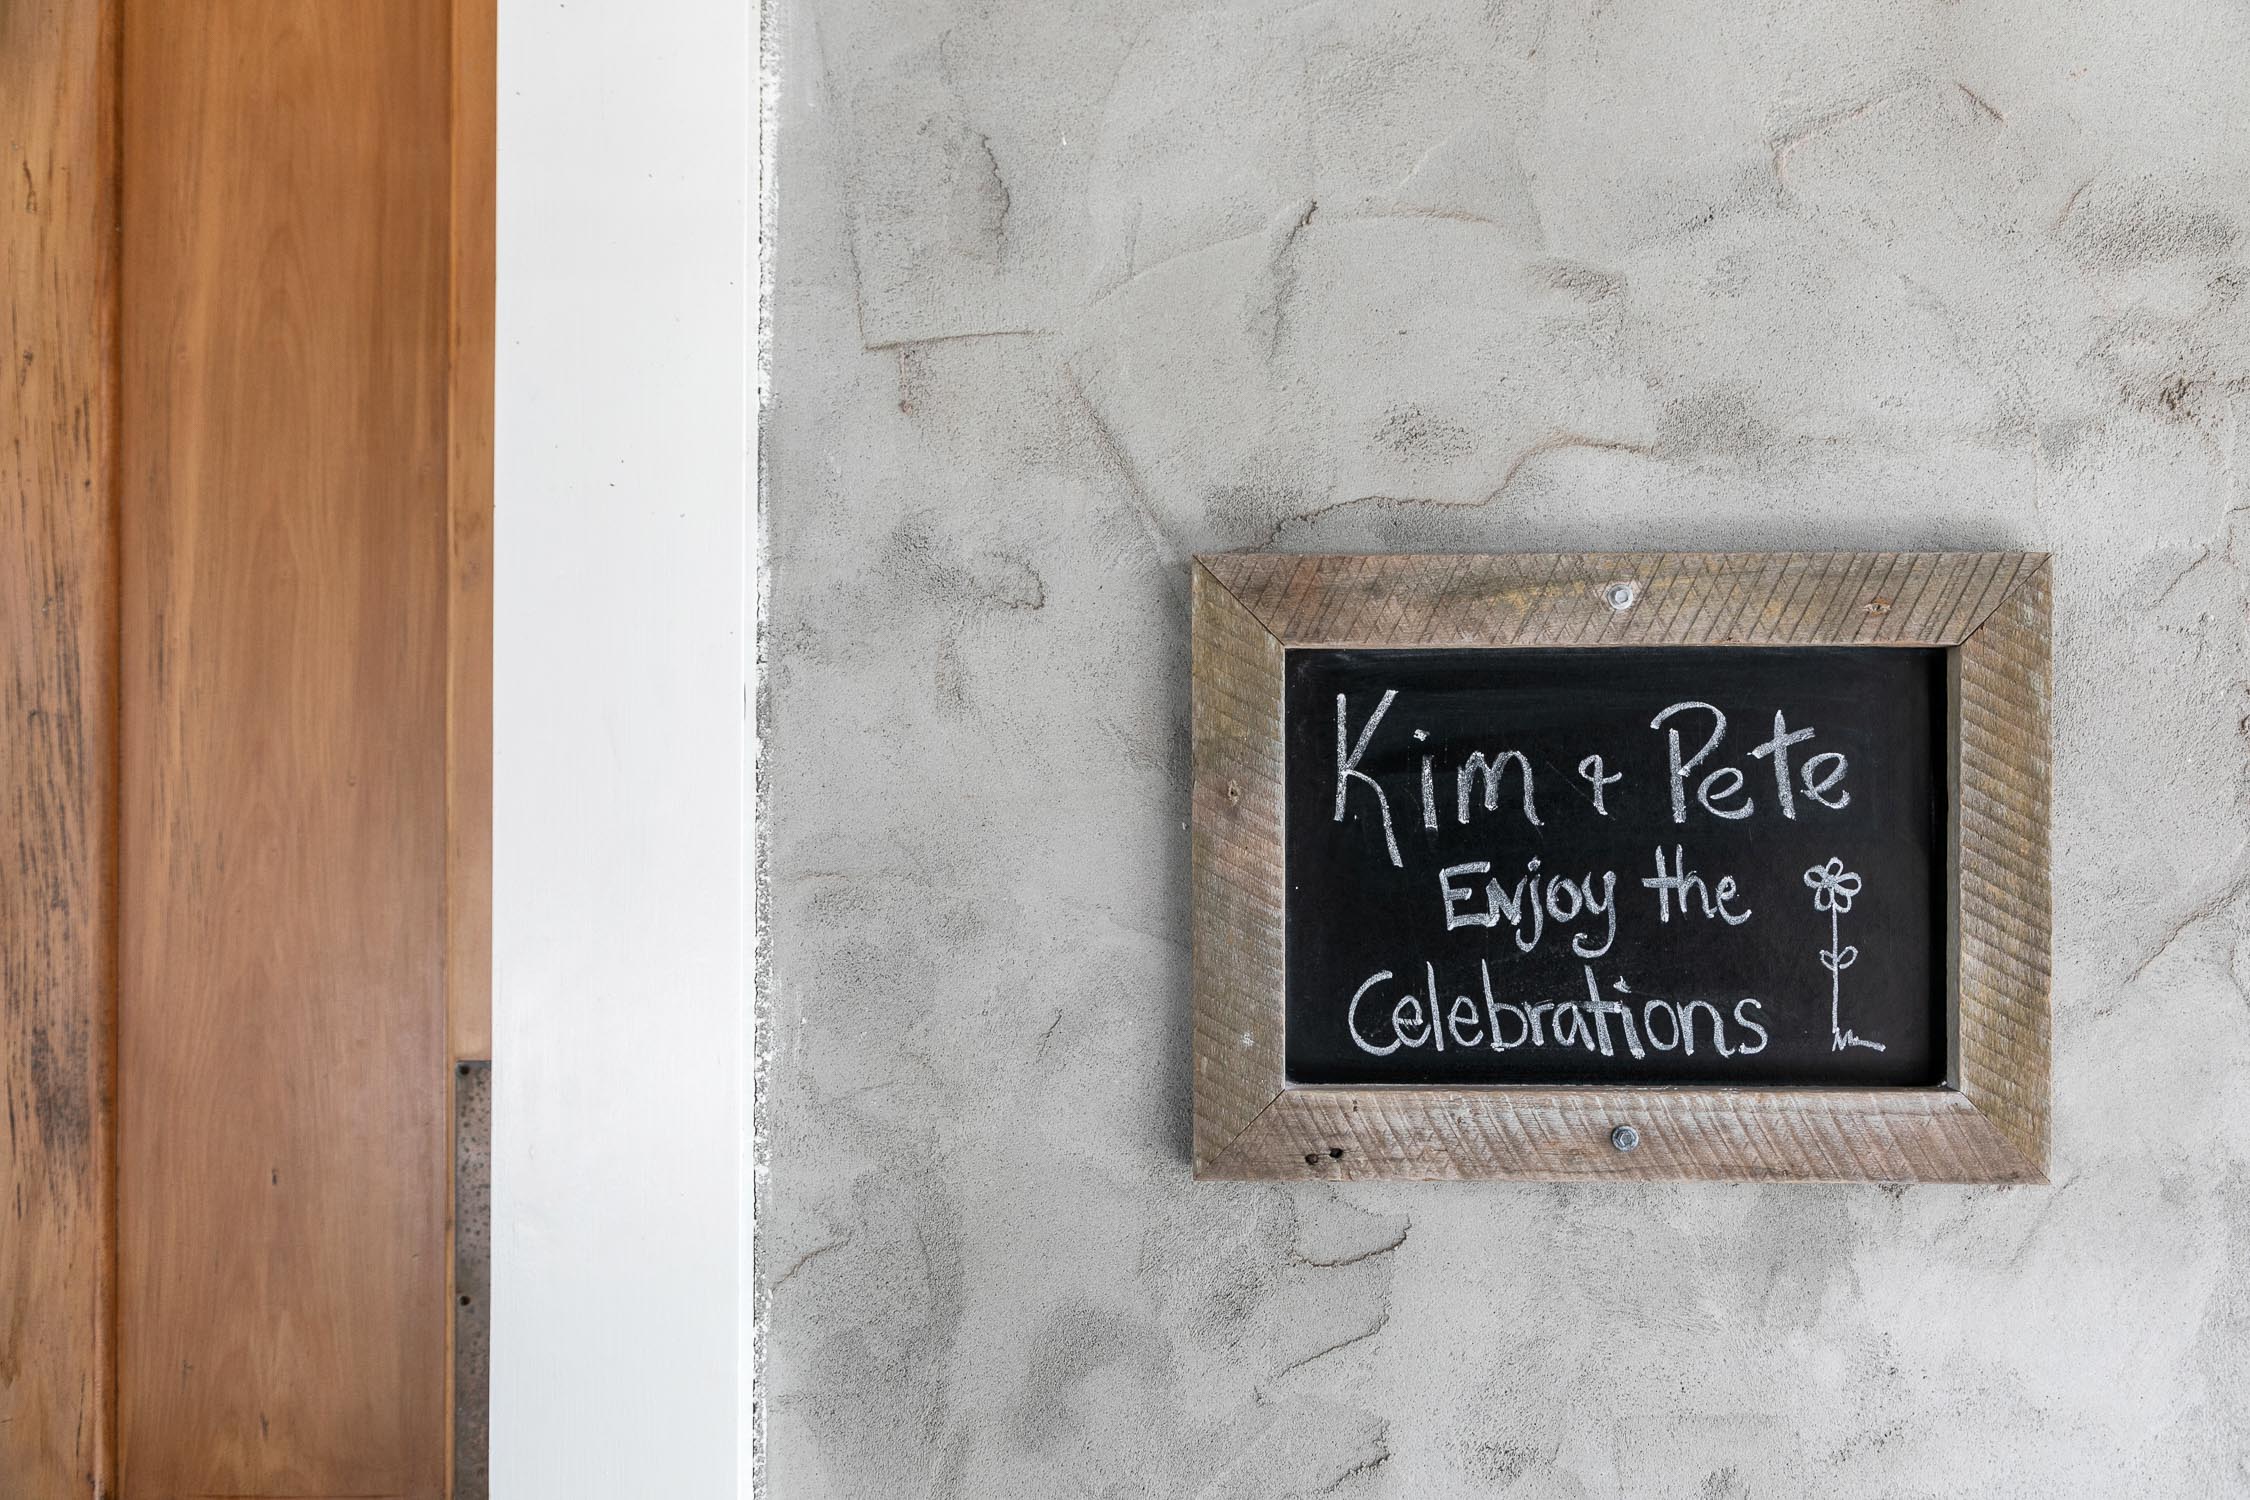 Kim & Pete
Enjoy the
Celebrations